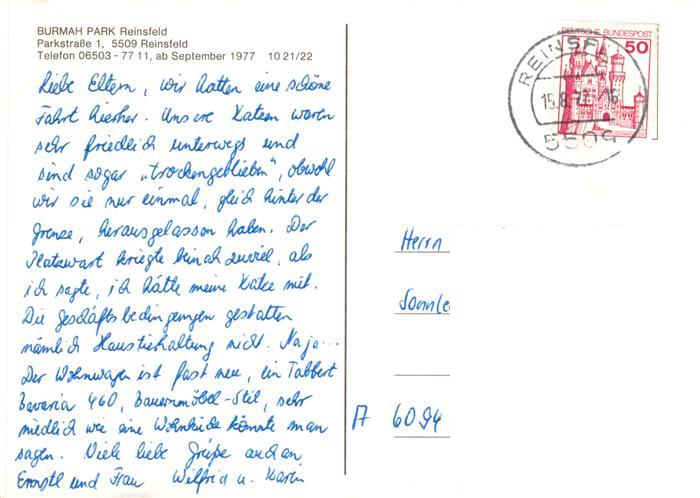 BURMAH PARK Reinsfeld
Parkstraße 1, 5509 Reinsfeld
Telefon 06503 - 77 11, ab September 1977 10 21/22
Liebe Eltern, wir hatten eine schöne
Fahrt hierher. Unsere Katzen waren
sehr friedlich unterwegs und
sind sogar „trockengeblieben“, obwohl
wir sie nur einmal, gleich hinter der
Grenze, herausgelassen haben. Der
Platzwart kriegte beinah zuviel, als
ich sagte, ich hätte meine Katze mit.
Die Geschäftsbedingungen gestatten
nämlich Haustierhaltung nicht. Na ja...
Der Wohnwagen ist fast neu, ein Tabbert
Bavaria 460, Bauernmöbel-Stil, sehr
niedlich wie eine Wohnküche könnte man
sagen. Viele liebe Grüße auch an
und Frau Wilfrid u. Karin
DEUTSCHE BUNDESPOST
50
REINSF
15.8.77 16
5509
Herrn
A 6094